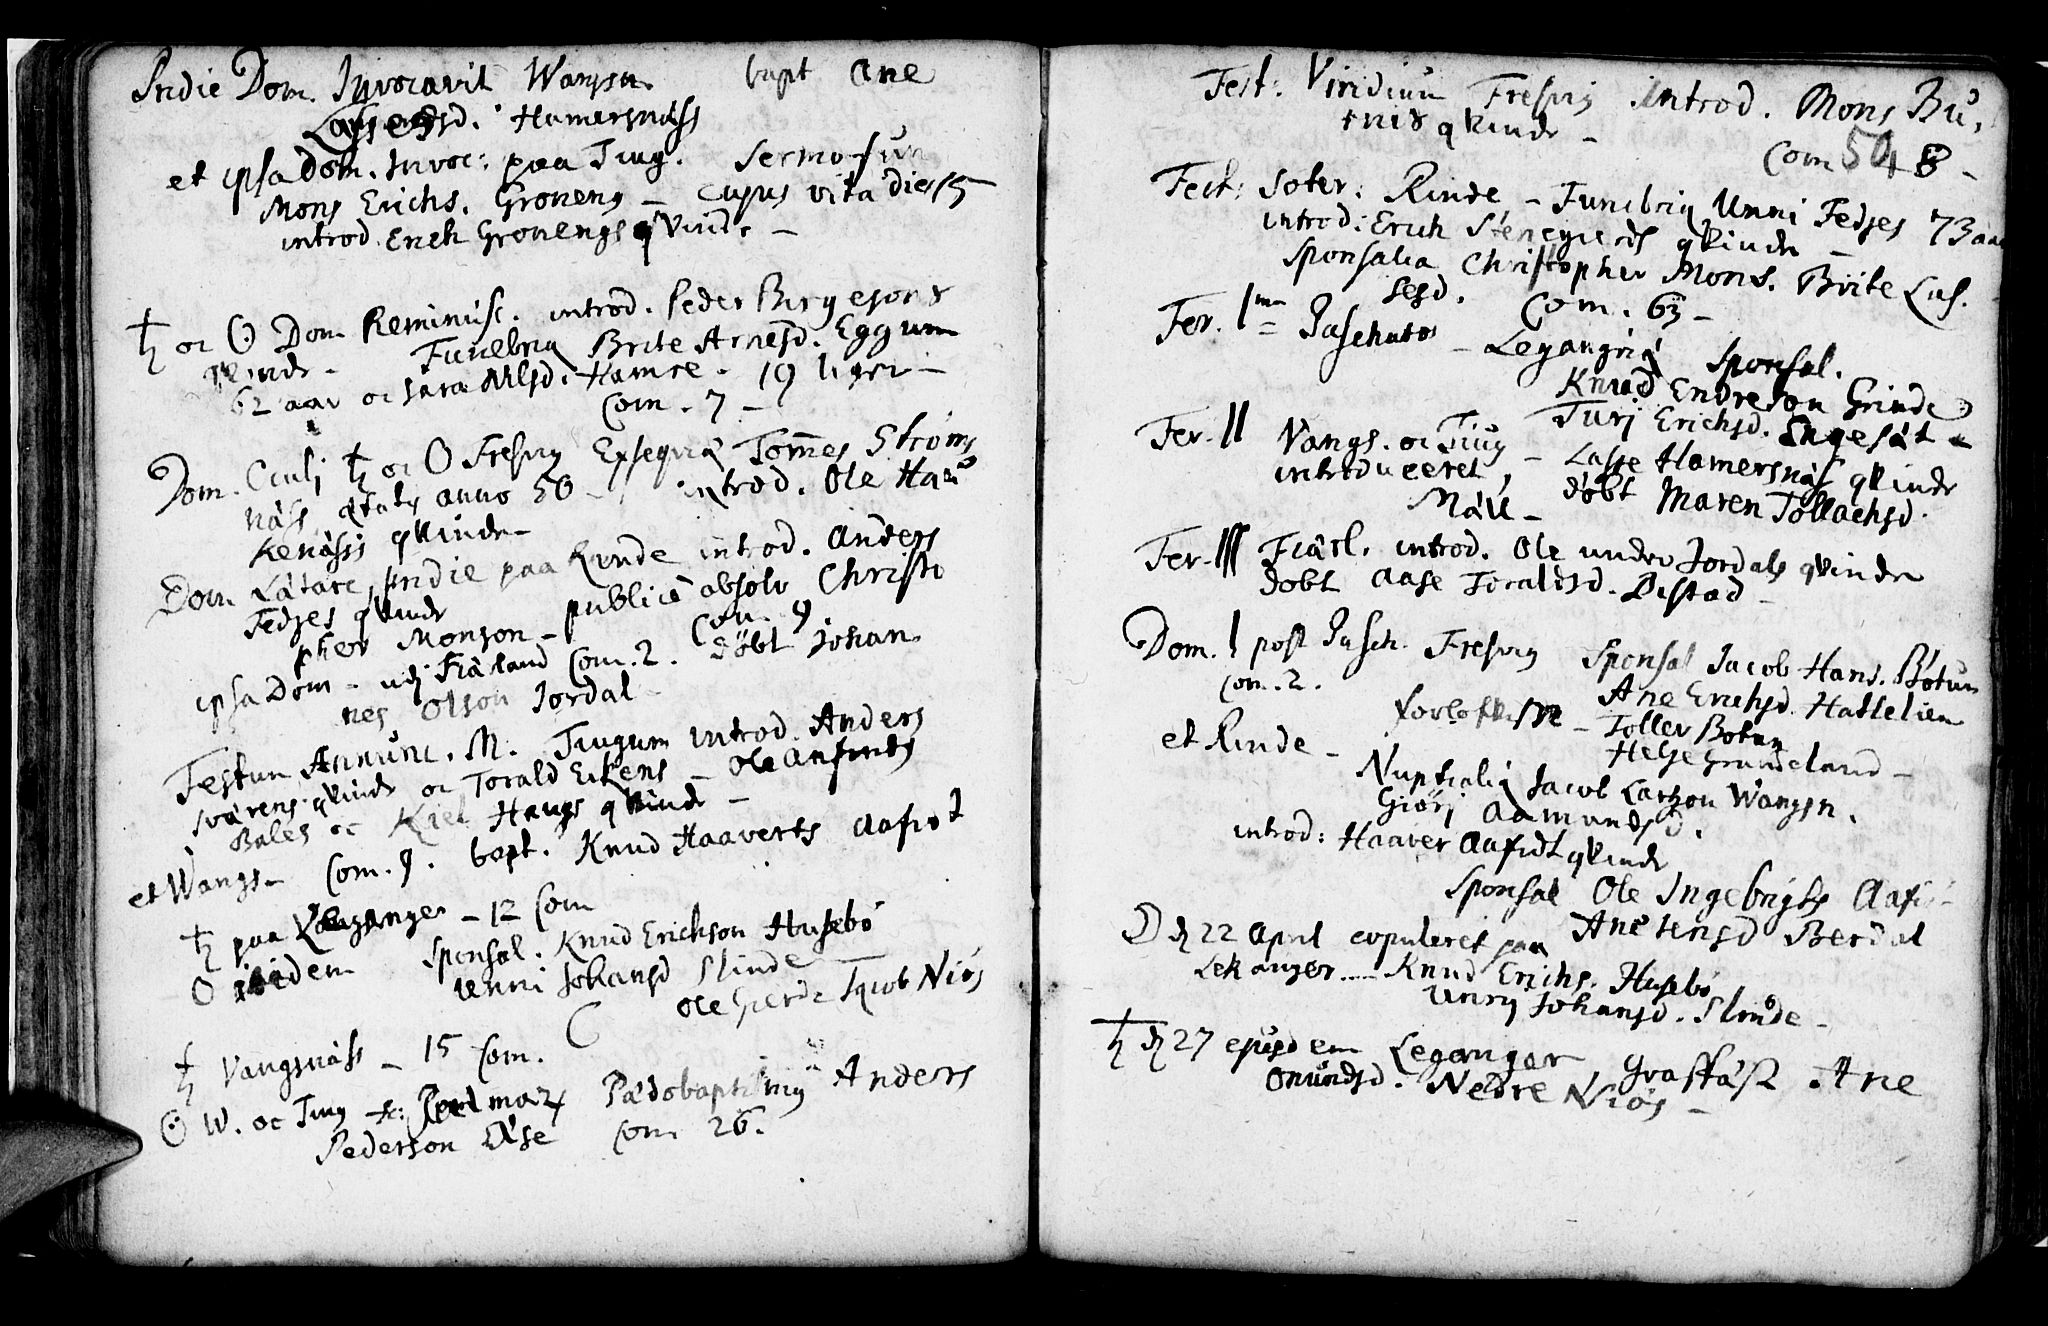 Pridie Dom. Invocavit Wangsn. bapt Ane
Lasesd. Hamersnæss
et ipsa Dom. Invoc: paa Tiug. Sermo fun
Mons Erichs. Groneng – cujus vita dies 15
introd. Erich Gronengs qvinde –
♄ oc ☉ Dom Reminisc. introd. Peder Birgesons
qvinde – Funebria Brite Arnesd. Eggum
62 aar oc Sara Nilsd. Hamre. 19 uger –
Com. 7 –
Dom. Oculj ♄ oc ☉ Fresvig Exseqviæ Tom̅es Ströms
næss ætatis anno 50 – introd. Ole Ham
renæsis qvinde –
Dom Lætare, pridie paa Rinde introd. Anders
Fedjes qvinde publicè absolv Christo
pher Monson – Com. 9
ipsa Dom – udj Fiærland Com. 2. döbt Johan
nes Olson Jordal –
Festum Annunc. M. Tiugum introd. Anders
Sværens qvinde oc Torald Eitens – Ole Anfinds
Bales oc Kiel Haugs qvinde –
et Wangs – Com. 9. bapt. Knud Haaverts Aafiet
♄ paa Leganger – 12 Com
☉ ibidem Sponsal. Knud Erichson Husebö
Unni Johansd Slinde
Ole Gierde Jacob Niös
♄ Vangsnæss – 15 Com.
☉ W. oc Tiug – Palmar Pædobaptismg Anders
Pederson Else Com 26.
Fest: Viridium Fresvig introd. Mons Bu,
tnis qvinde –
Com 8 –
54
Fest: Soter: Rinde – Funebria Unni Fedjes 73 aar
introd: Erich Stenegierds qvinde –
Sponsalia Christopher Mons. Brite Las.
sesd. Com. 63 –
Fer. 1ma Paschatos – Legangriæ Sponsal.
Knud Endreson Grinde
Turj Erichsd. Engesæt
Fer. II Vangs. oc Tiug – Lasse Hamersnæs qvinde
introduceret, döbt Maren Tollachsd.
Mæl –
Fer. III Fiærl. introd. Ole under Jordals qvinde
döbt Aase Toraldsd. Distad –
Dom. 1 post Pasch. Fresvig Sponsal Jacob Hans. Bötun
Com. 2. Ane Erichsd. Hatlelien
forlofvere – Toller Botun
Helge Grindeland –
et Rinde – Nuptialia Jacob Larson Wangsn.
Giörj Aamundsd.
introd: Haaver Aafedt qvinde
Sponsal Ole Ingebrigts Aafe
Ane Jensd Berdal
☽ d 22 April copuleret paa
Lekanger ..... Knud Erichs. Husebö
Unnj Johansd. Slinde –
♄ d 27 ejusdem Leganger Graffæst Ane
Omundsd. Nedre Niös –